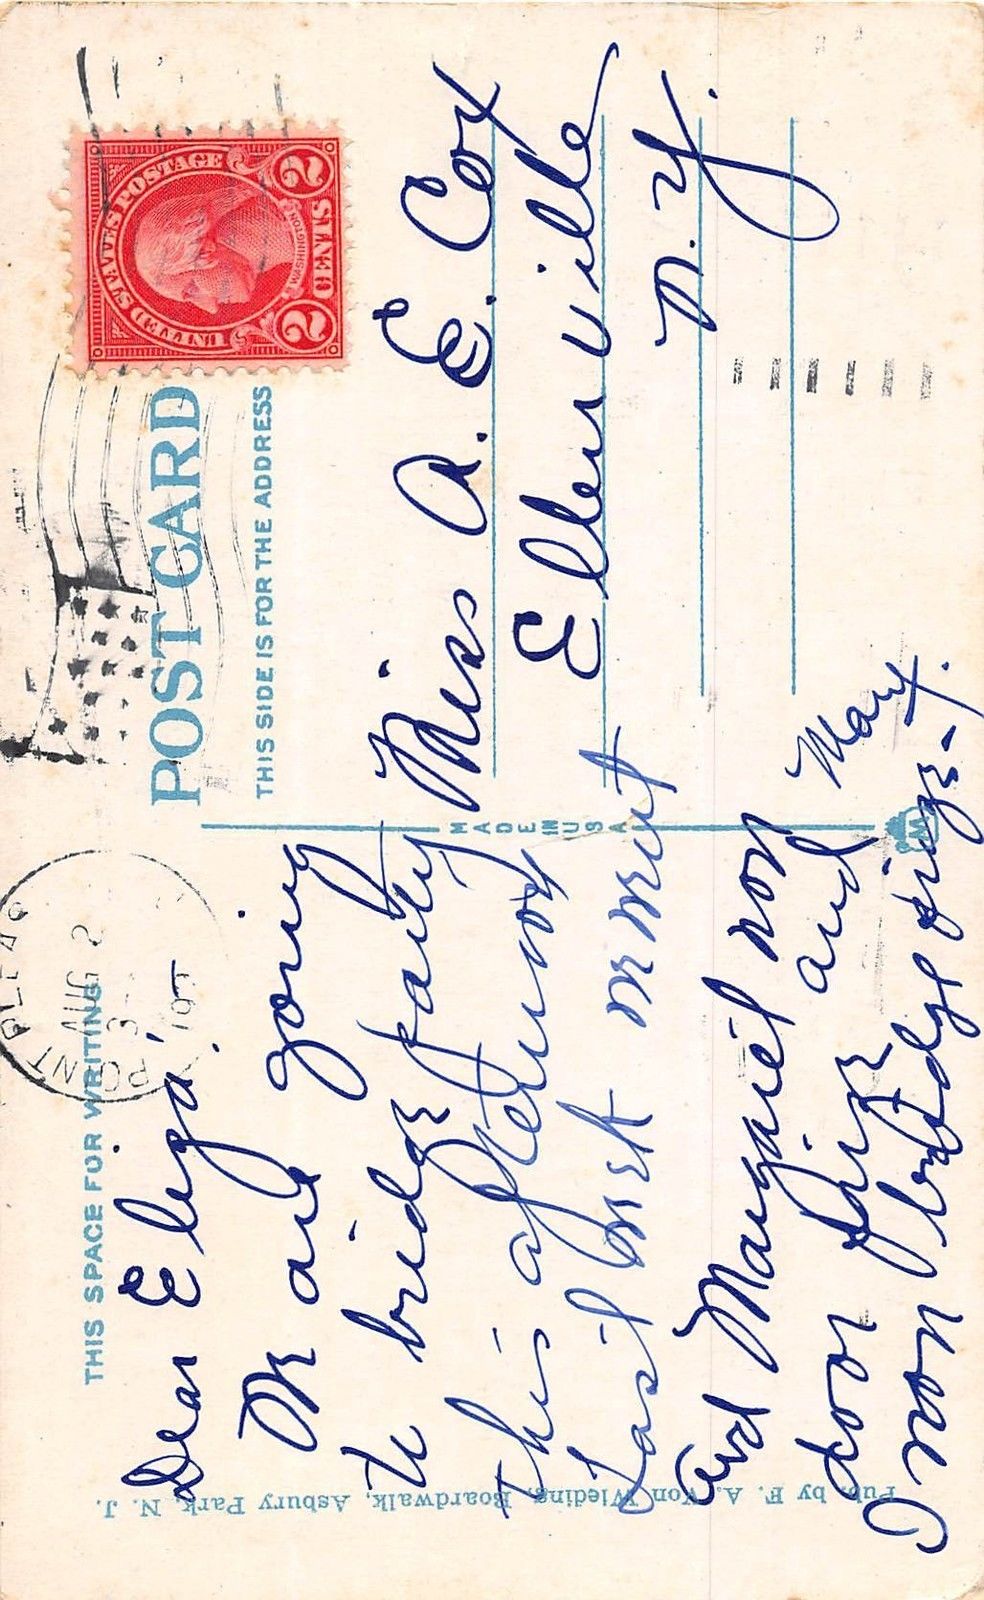 THIS SPACE FOR WRITING
POST CARD
THIS SIDE IS FOR THE ADDRESS
UNITED STATES POSTAGE
WASHINGTON
2 2
POINT PLEAS
AUG 2
3
MADE
IN
USA
M
Dear Eliza:
We are going
to bridge party
this afternoon
Last week went
and Margaret
door fine and
I won bridge
Mary.
Miss A. E. Cox
Ellenville
N.Y.
Pub. by F. A. Von Wieding, Boardwalk, Asbury Park, N. J.